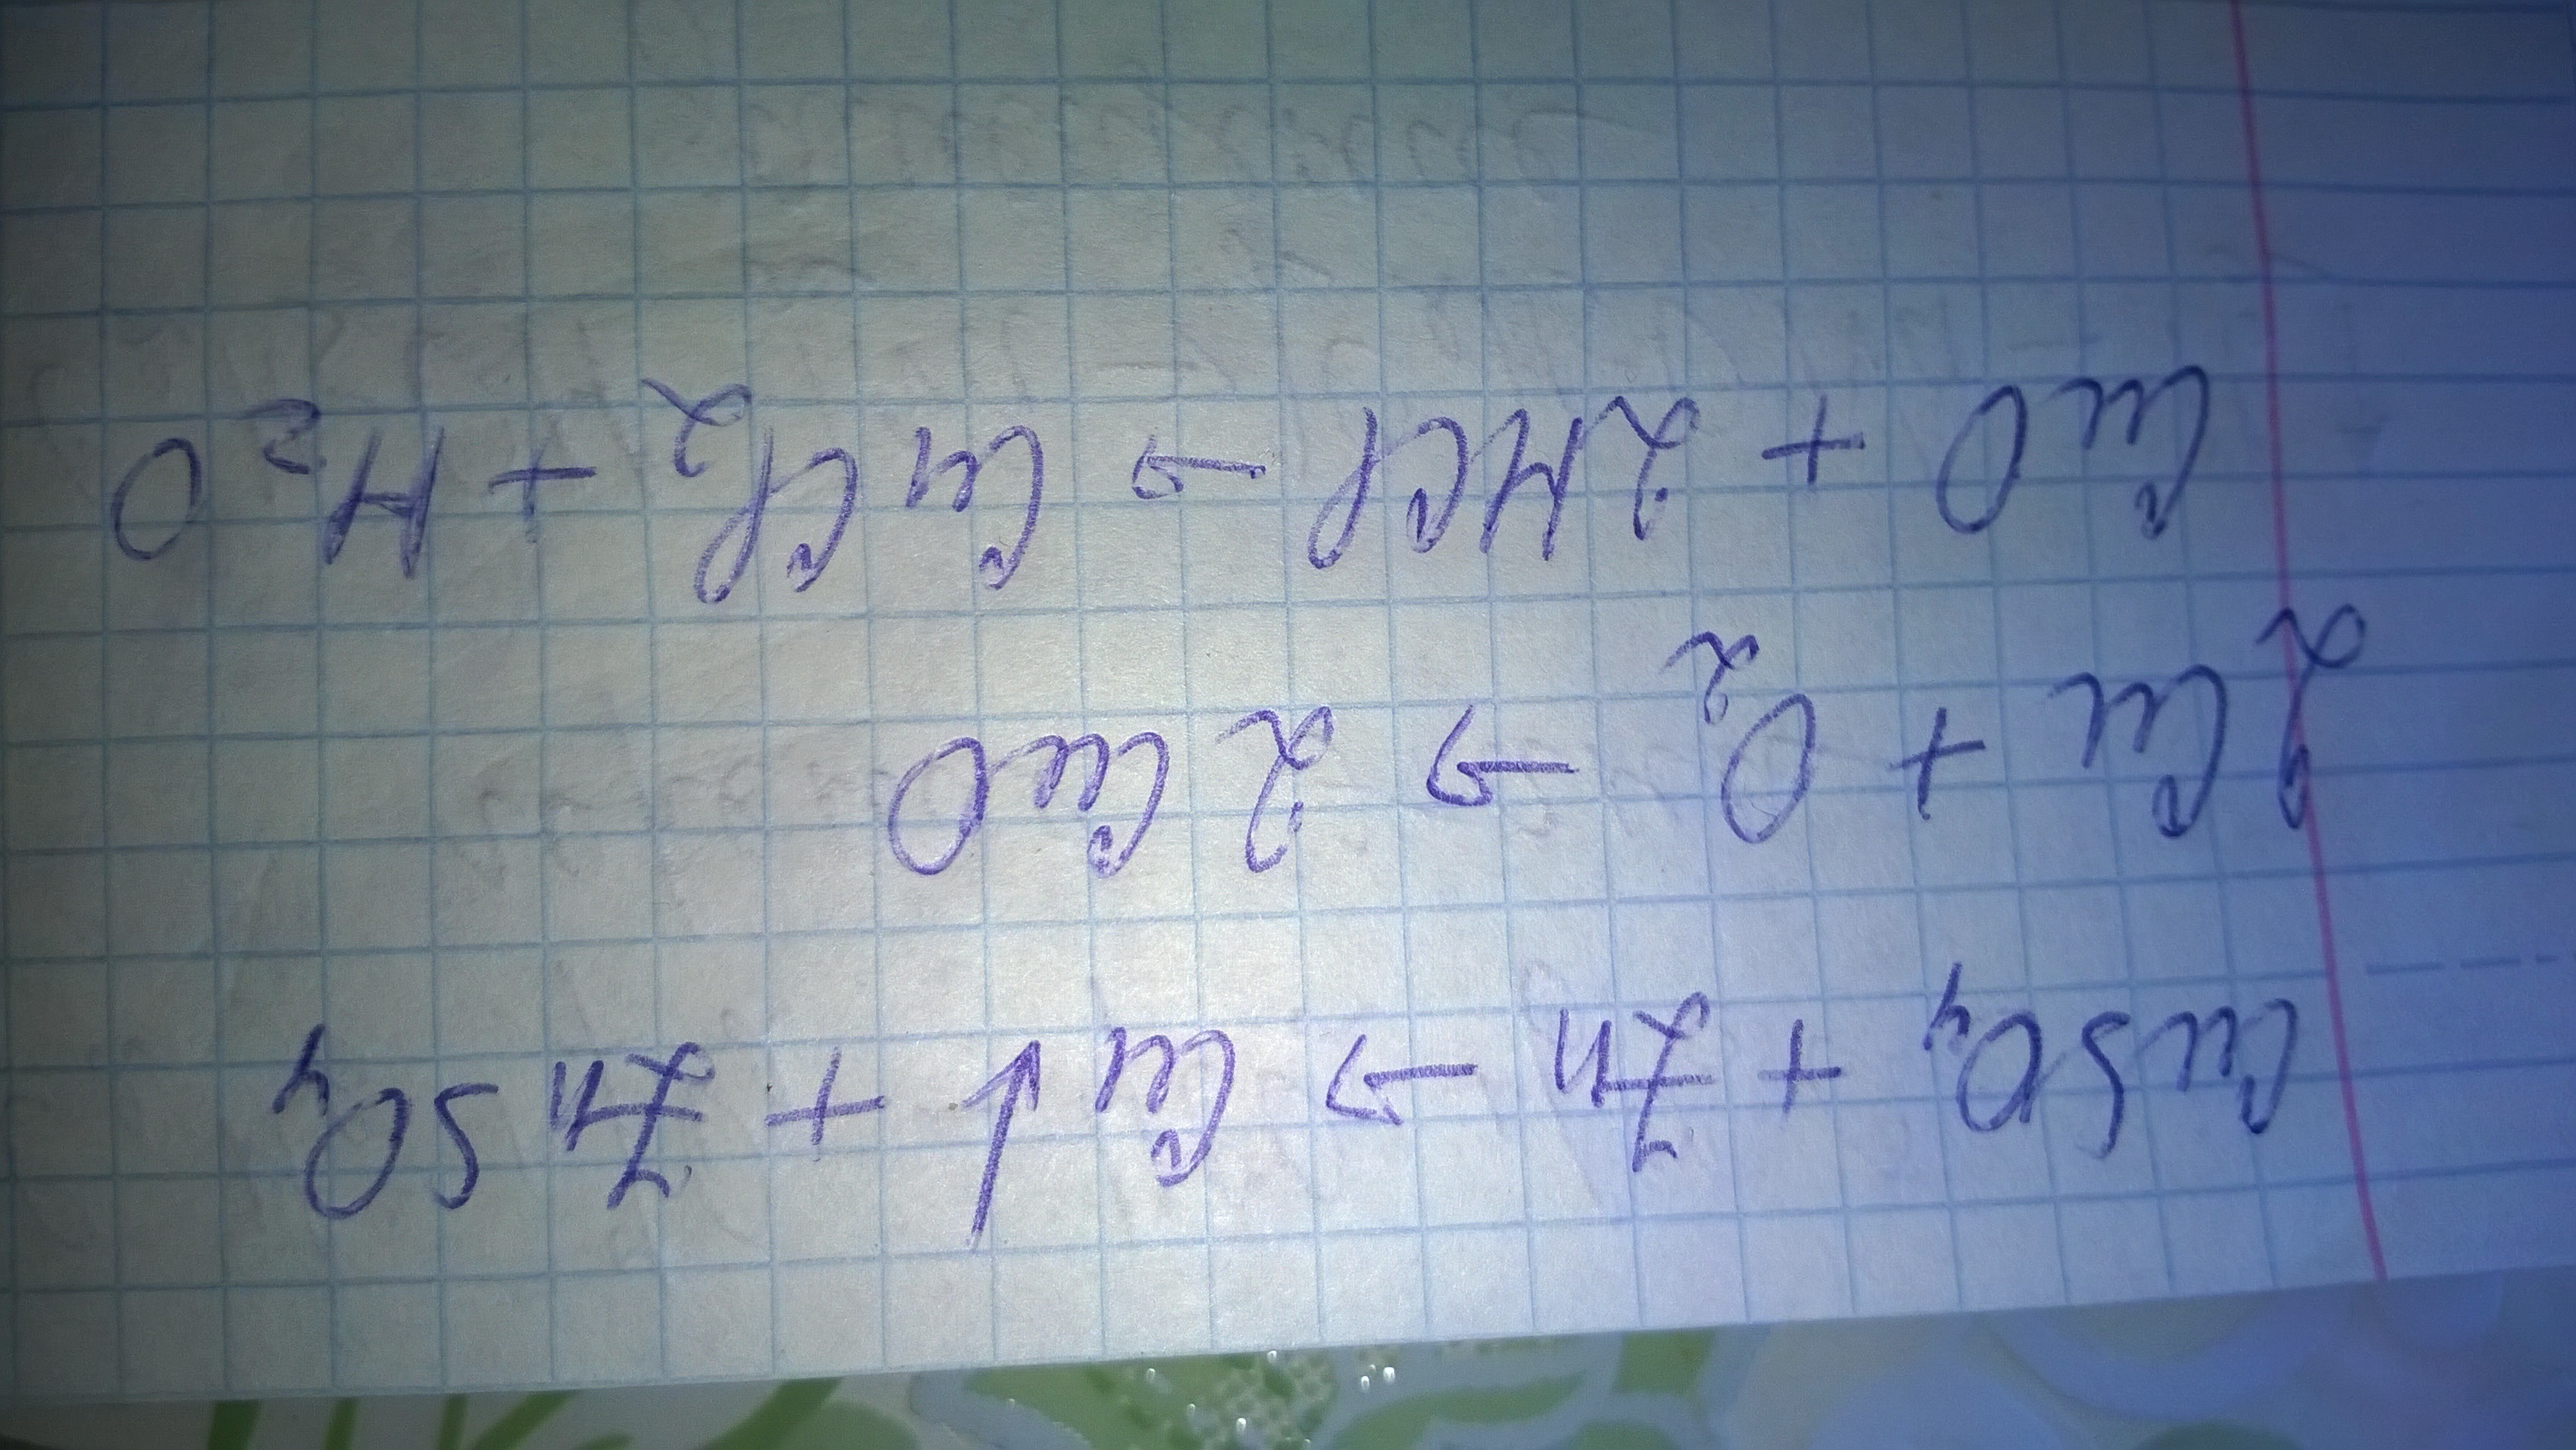 CuSO₄ + Zn → Cu↓ + ZnSO₄
2Cu + O₂ → 2CuO
CuO + 2HCl → CuCl₂ + H₂O